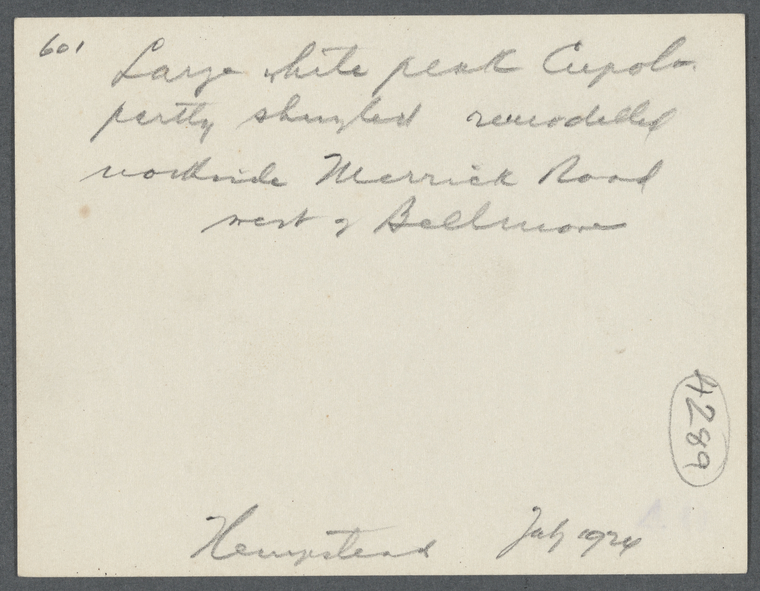 601
Large white peak Cupola
partly shingled remodelled
northside Merrick Road
west of Bellmore
4289
Hempstead July 1924